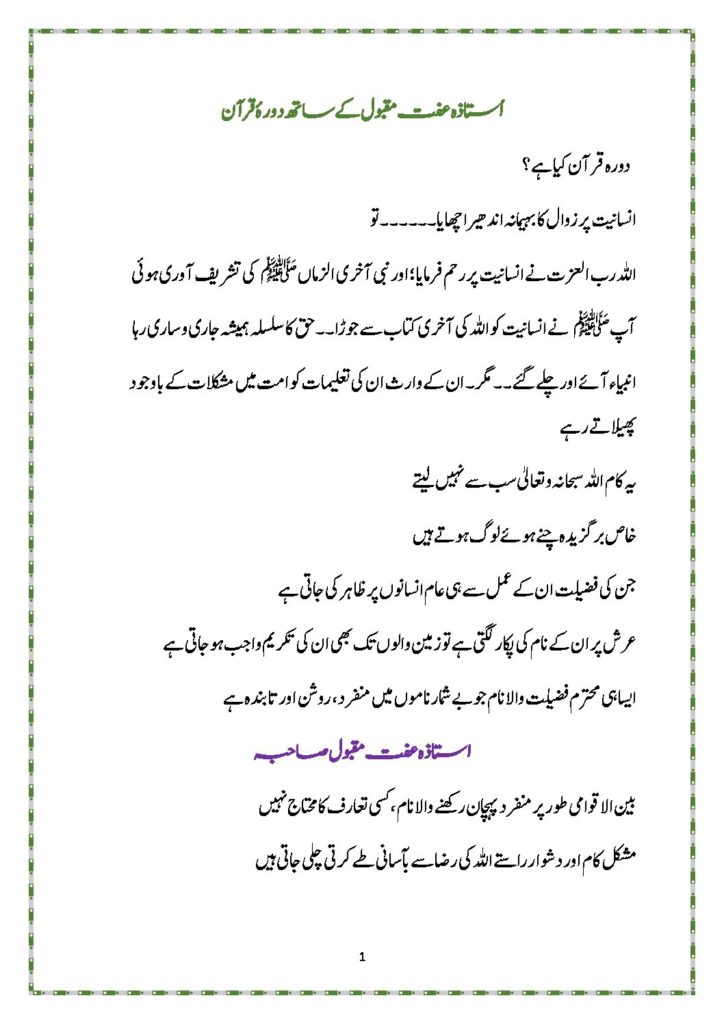 اُستاذہ عفت مقبول کے ساتھ دورۂ قرآن
دورہ قرآن کیا ہے؟
انسانیت پر زوال کا بہیمانہ اندھیرا چھایا۔۔۔۔۔۔ تو
اللہ رب العزت نے انسانیت پر رحم فرمایا؛ اور نبی آخری الزماں ﷺ کی تشریف آوری ہوئی
آپ ﷺ نے انسانیت کو اللہ کی آخری کتاب سے جوڑا۔۔ حق کا سلسلہ ہمیشہ جاری و ساری رہا
انبیاء آئے اور چلے گئے۔۔ مگر۔ ان کے وارث ان کی تعلیمات کو امت میں مشکلات کے باوجود
پھیلاتے رہے
یہ کام اللہ سبحانہ وتعالیٰ سب سے نہیں لیتے
خاص برگزیدہ چنے ہوئے لوگ ہوتے ہیں
جن کی فضیلت ان کے عمل سے ہی عام انسانوں پر ظاہر کی جاتی ہے
عرش پر ان کے نام کی پکار لگتی ہے تو زمین والوں تک بھی ان کی تکریم واجب ہو جاتی ہے
ایسا ہی محترم فضیلت والا نام جو بے شمار ناموں میں منفرد، روشن اور تابندہ ہے
استاذہ عفت مقبول صاحبہ
بین الاقوامی طور پر منفرد پہچان رکھنے والا نام، کسی تعارف کا محتاج نہیں
مشکل کام اور دشوار راستے اللہ کی رضا سے بآسانی طے کرتی چلی جاتی ہیں
1